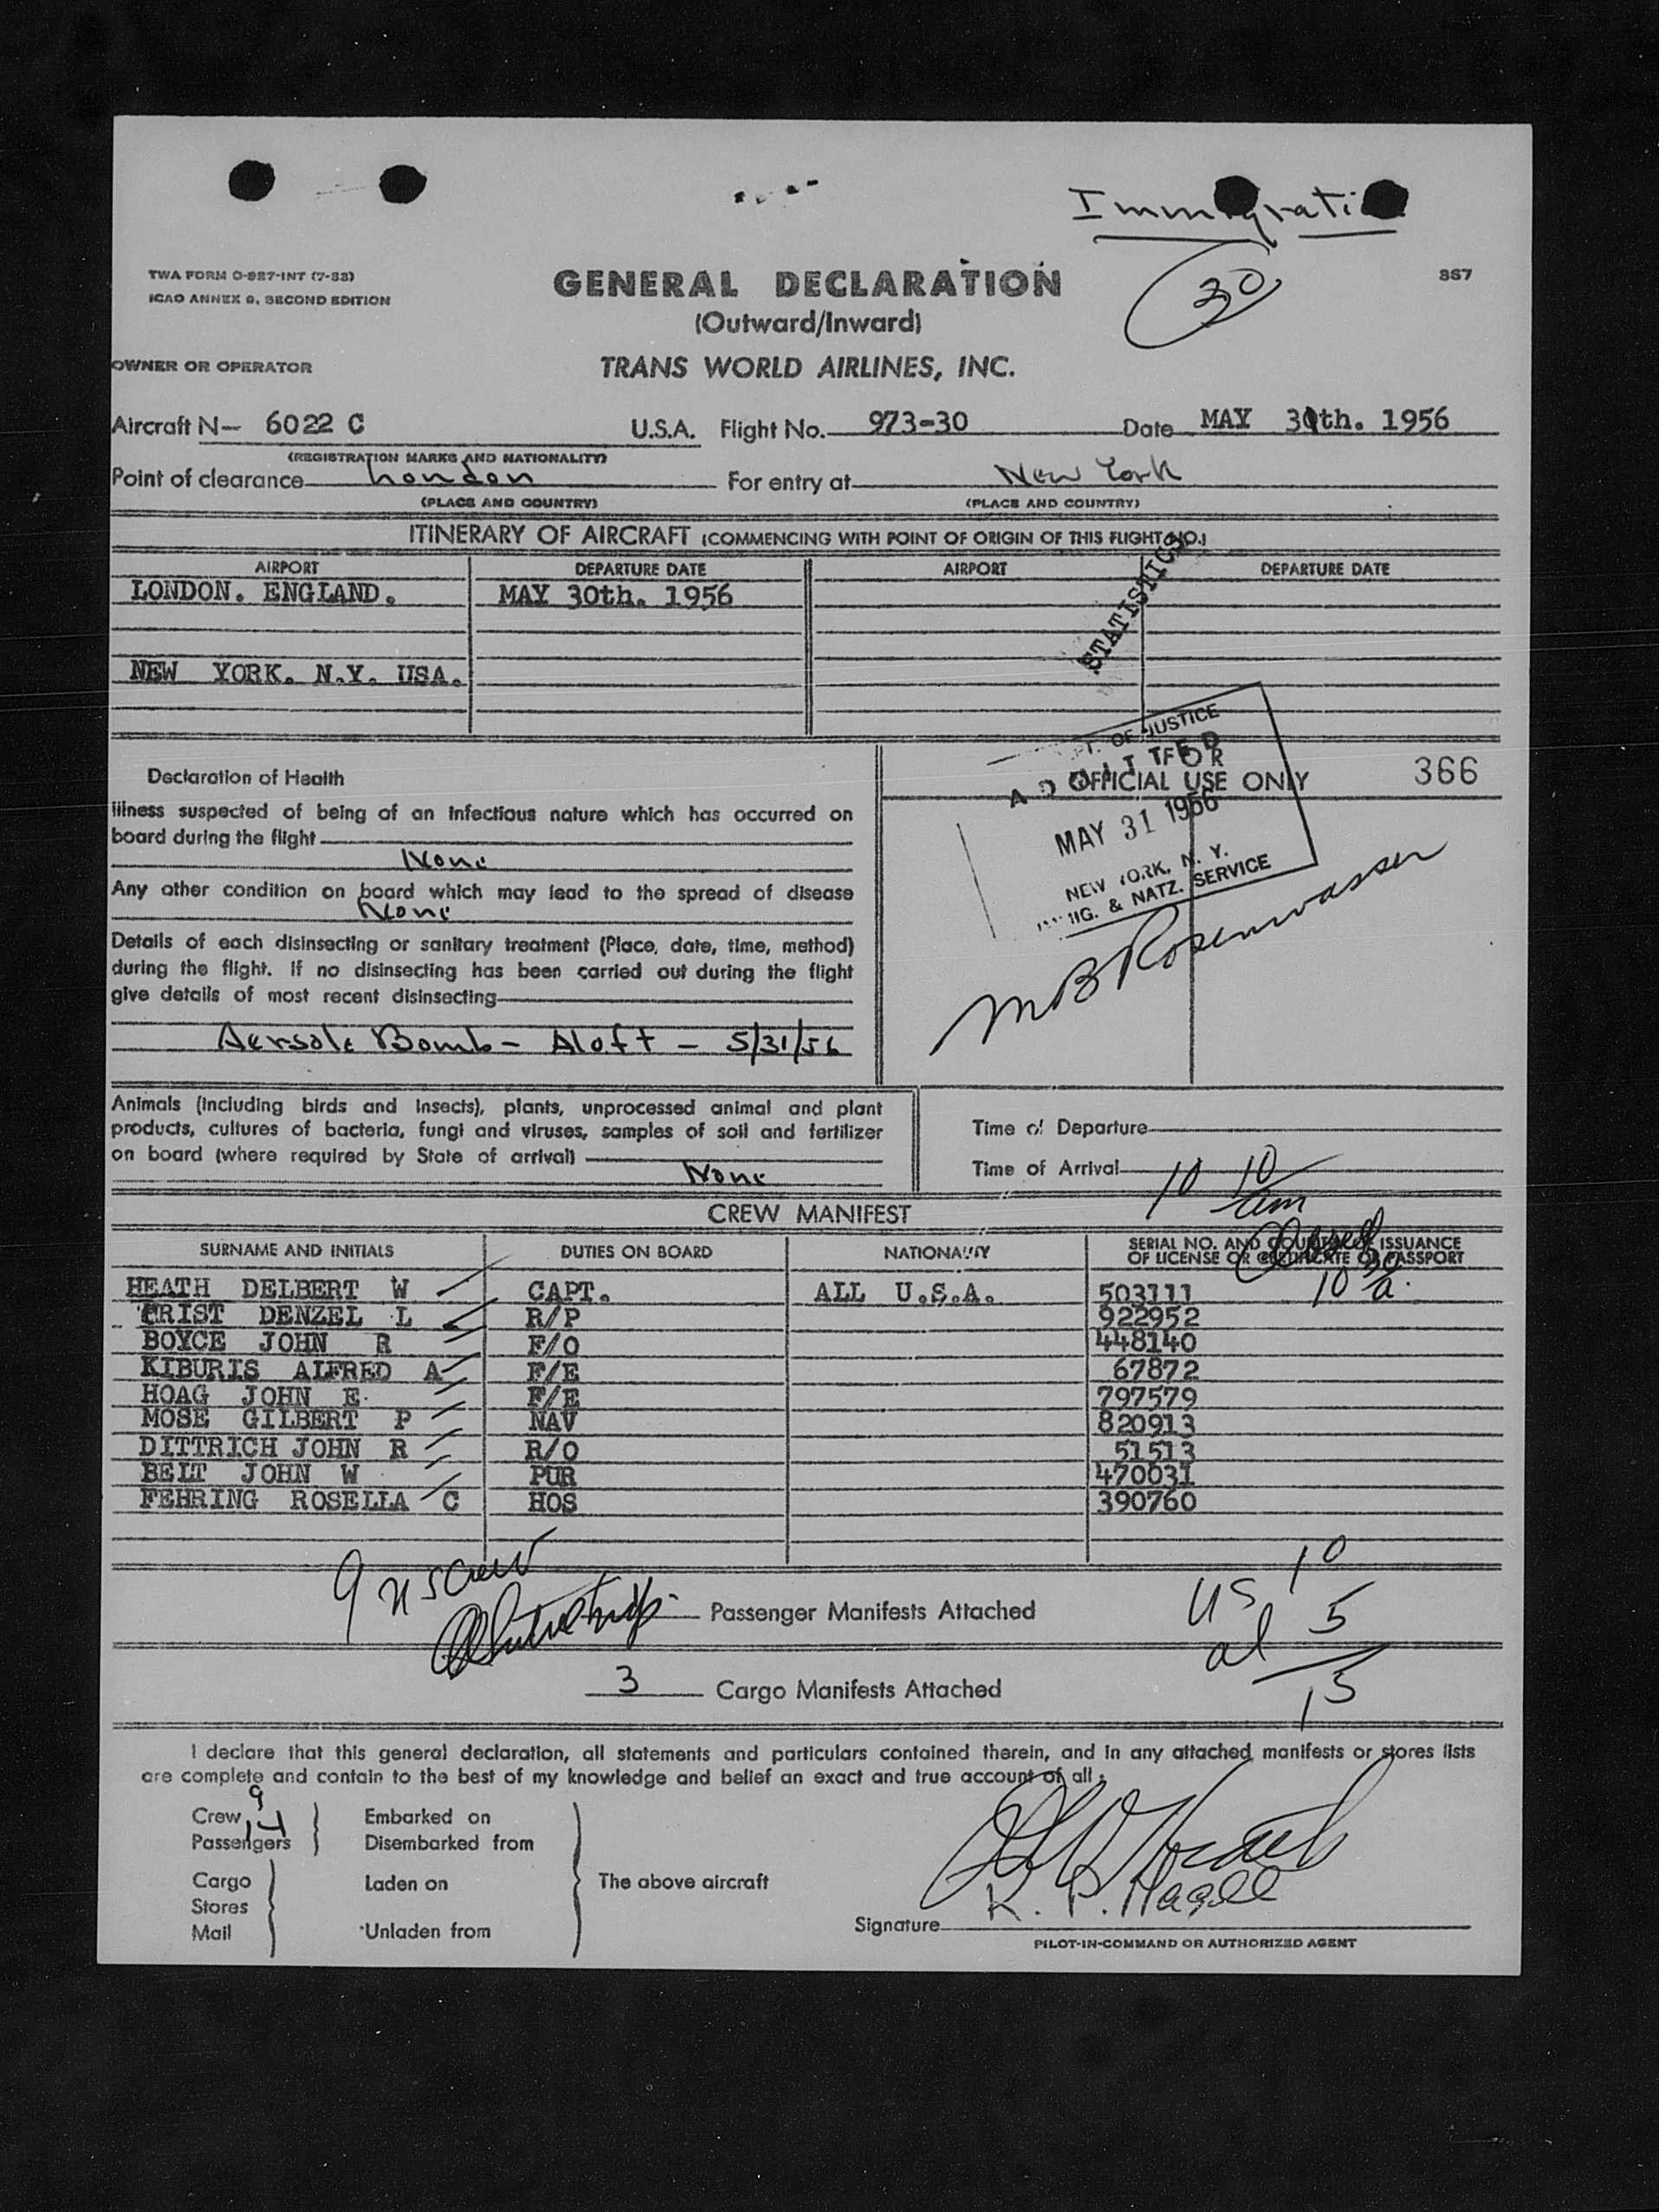 Immigration
30
TWA FORM O-927-INT (7-53)
ICAO ANNEX 9, SECOND EDITION
GENERAL DECLARATION
367
(Outward/Inward)
OWNER OR OPERATOR
TRANS WORLD AIRLINES, INC.
Aircraft N- 6022 C U.S.A. Flight No. 973-30 Date MAY 30th. 1956
(REGISTRATION MARKS AND NATIONALITY)
Point of clearance London For entry at New York
(PLACE AND COUNTRY) (PLACE AND COUNTRY)
ITINERARY OF AIRCRAFT (COMMENCING WITH POINT OF ORIGIN OF THIS FLIGHT NO.)
AIRPORT DEPARTURE DATE AIRPORT DEPARTURE DATE
LONDON. ENGLAND. MAY 30th. 1956
STATISTICS
NEW YORK. N.Y. USA.
Declaration of Health
Illness suspected of being of an infectious nature which has occurred on
board during the flight
None
Any other condition on board which may lead to the spread of disease
None
Details of each disinsecting or sanitary treatment (Place, date, time, method)
during the flight. If no disinsecting has been carried out during the flight
give details of most recent disinsecting
Aersole Bomb - Aloft - 5/31/56
FOR
OFFICIAL USE ONLY
366
DEPT. OF JUSTICE
ADMITTED
MAY 31 1956
NEW YORK, N. Y.
IMMIG. & NATZ. SERVICE
M B Rosenwasser
Animals (including birds and insects), plants, unprocessed animal and plant
products, cultures of bacteria, fungi and viruses, samples of soil and fertilizer
on board (where required by State of arrival)
None
Time of Departure
Time of Arrival 10 10 am
CREW MANIFEST
SURNAME AND INITIALS DUTIES ON BOARD NATIONALITY SERIAL NO. AND COUNTRY OF ISSUANCE
OF LICENSE OR CERTIFICATE OR PASSPORT
HEATH DELBERT W CAPT. ALL U.S.A. 503111
CRIST DENZEL L R/P 922952
BOYCE JOHN R F/O 448140
KIBURIS ALFRED A F/E 67872
HOAG JOHN E. F/E 797579
MOSE GILBERT P NAV 820913
DITTRICH JOHN R R/O 51513
BELT JOHN W PUR 470031
FEHRING ROSELLA C HOS 390760
9 us crew
Passenger Manifests Attached
US 10
al 5
15
3 Cargo Manifests Attached
I declare that this general declaration, all statements and particulars contained therein, and in any attached manifests or stores lists
are complete and contain to the best of my knowledge and belief an exact and true account of all :
9
Crew Embarked on
Passengers Disembarked from
Cargo Laden on The above aircraft
Stores
Mail Unladen from
Signature
PILOT-IN-COMMAND OR AUTHORIZED AGENT